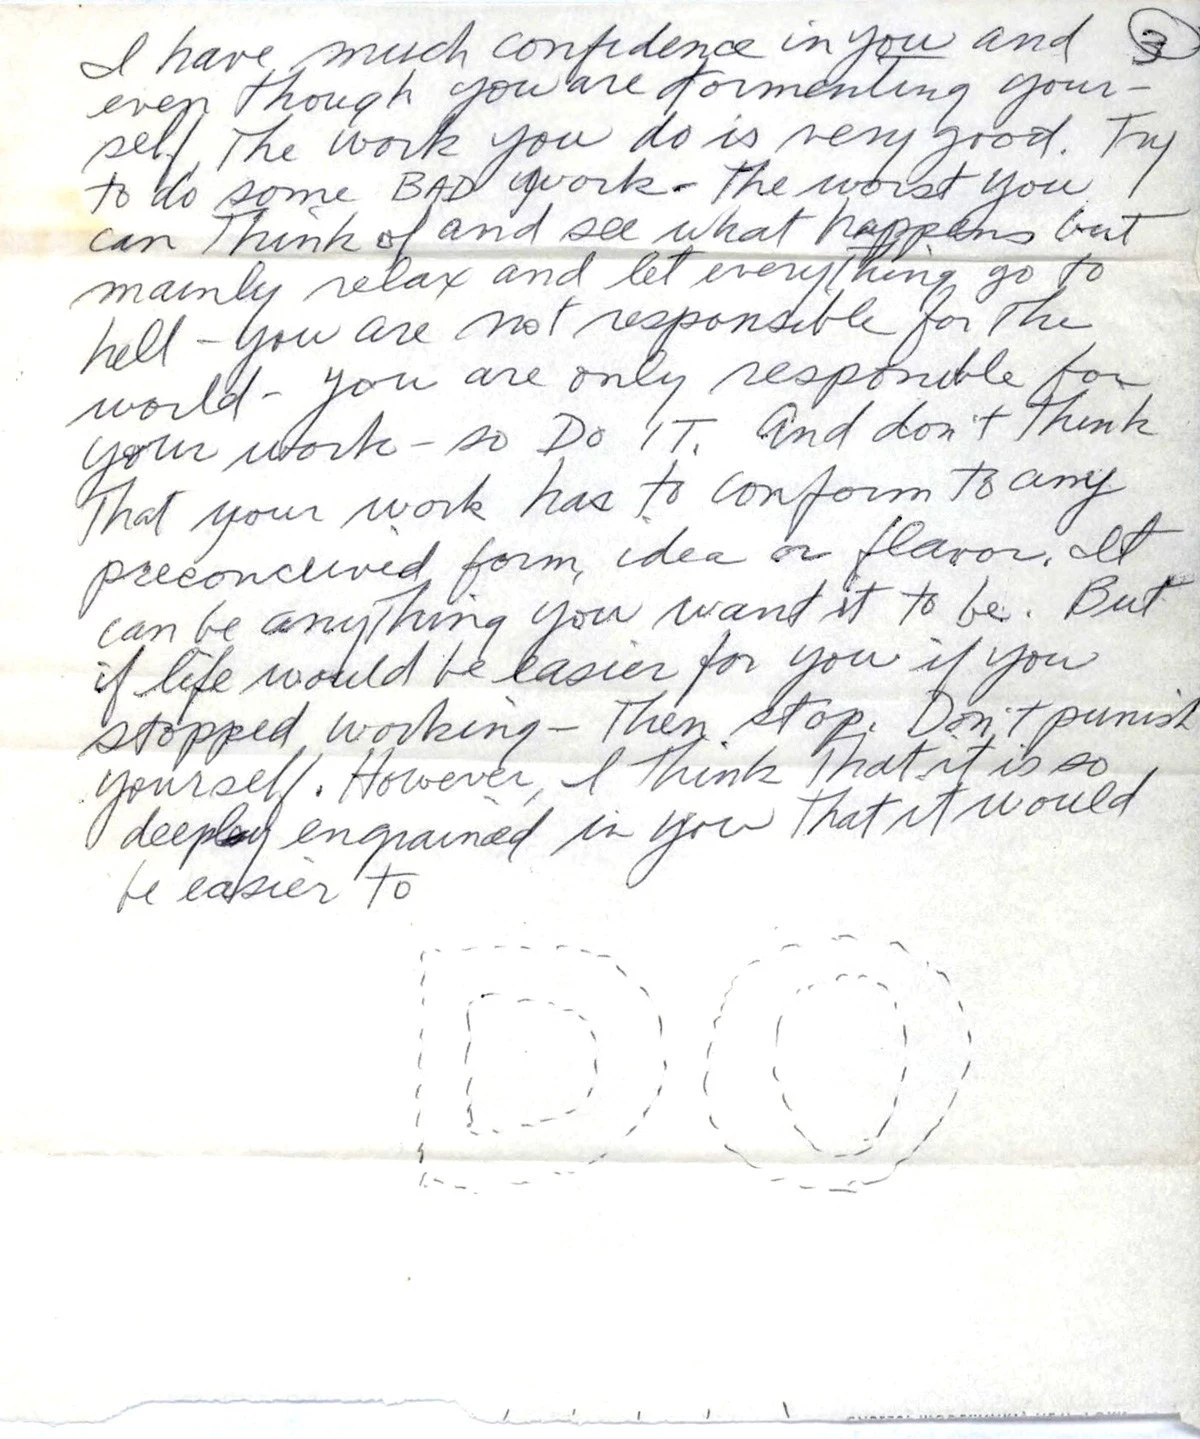 I have much confidence in you and 3
even though you are tormenting your-
self, the work you do is very good. Try
to do some BAD work - the worst you
can think of and see what happens but
mainly relax and let everything go to
hell - you are not responsible for the
world - you are only responsible for
your work - so DO IT. And don't think
that your work has to conform to any
preconceived form, idea or flavor. It
can be anything you want it to be. But
if life would be easier for you if you
stopped working - then stop. Don't punish
yourself. However, I think that it is so
deeply engrained in you that it would
be easier to
DO